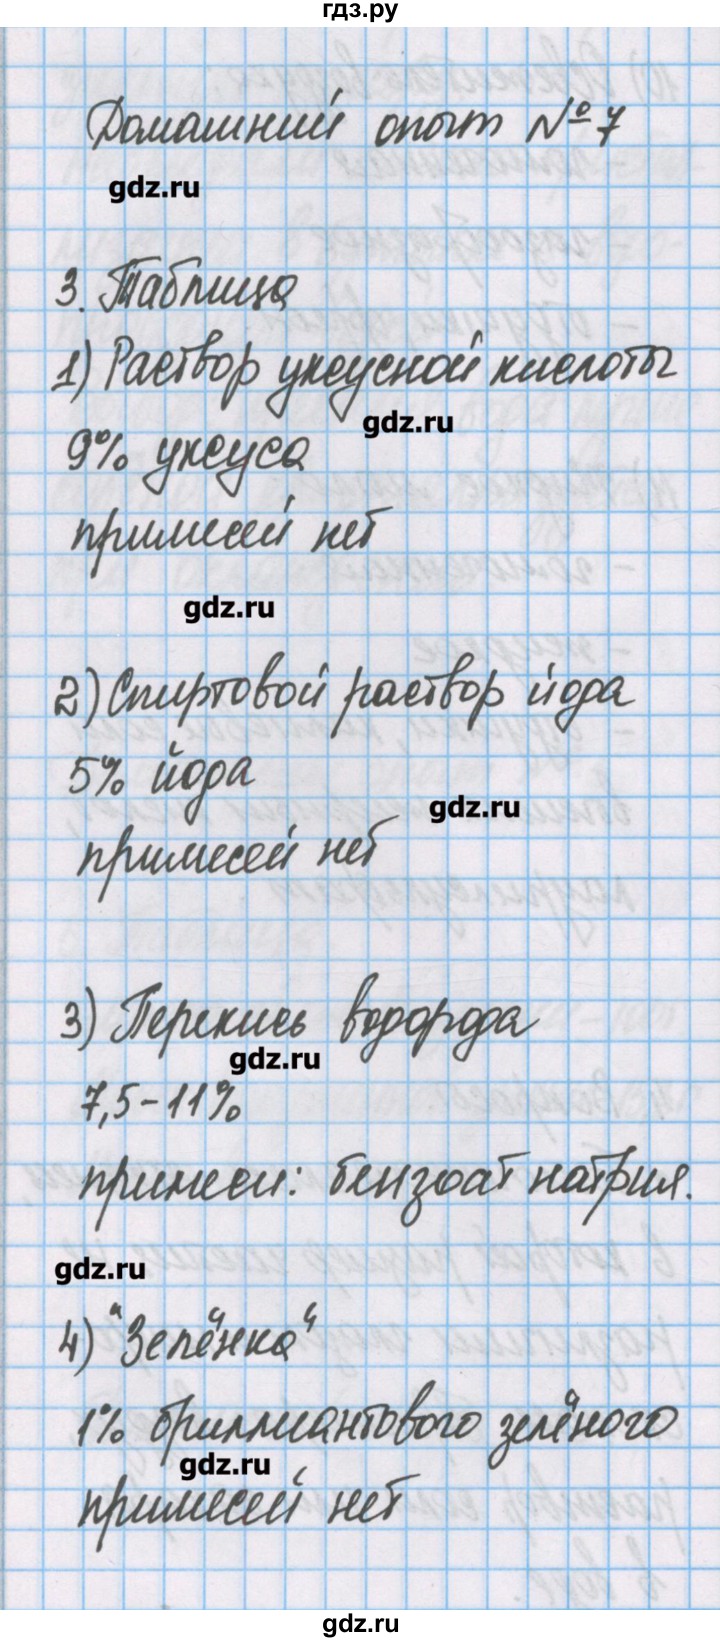 гдз.ру
Домашний опыт №7
gdz.ru
3. Таблица
1) Раствор уксусной кислоты
gdz.ru
9% уксуса
примесей нет
gdz.ru
2) Спиртовой раствор йода
5% йода
gdz.ru
примесей нет
3) Перекись водорода
gdz.ru
7,5-11%
примеси: бензоат натрия.
gdz.ru
4) "Зелёнка"
1% бриллиантового зелёного
gdz.ru
примесей нет
gdz.ru